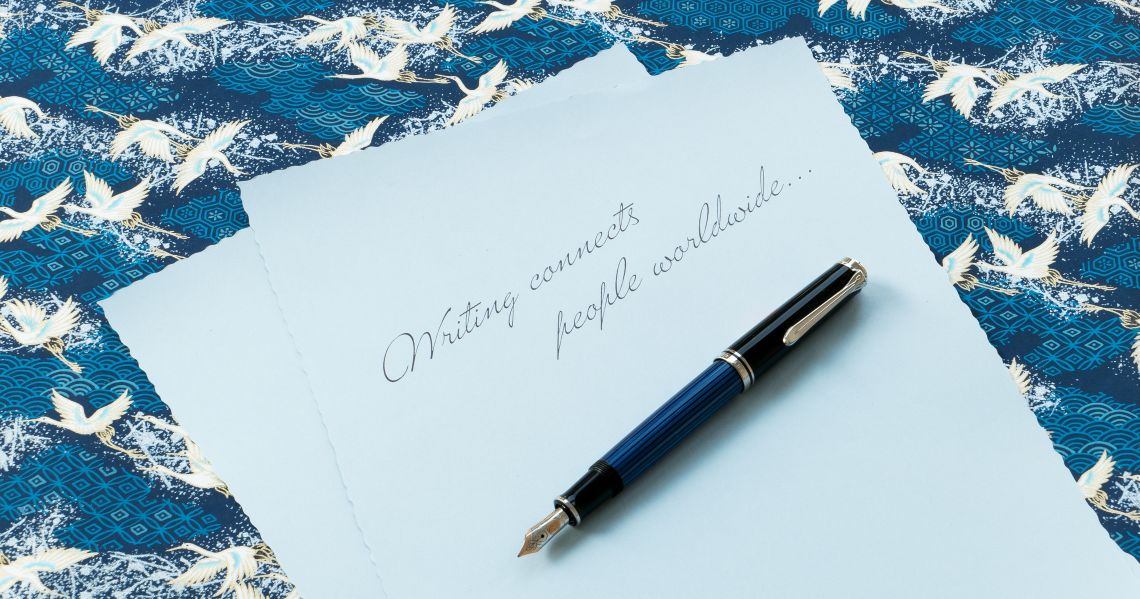 Writing connects
people worldwide...